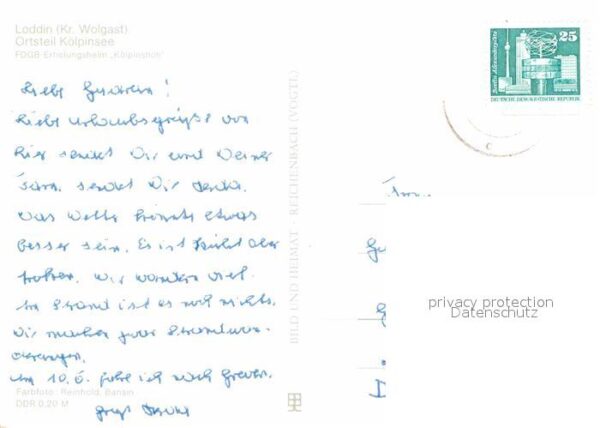 Loddin (Kr. Wolgast)
Ortsteil Kölpinsee
FDGB-Erholungsheim „Kölpinshöh"
Liebe
Liebe Urlaubsgrüße von
hier sendet Dir und Deiner
Fam. sendet Dir
Das Wetter könnte etwas
besser sein. Es ist kühl aber
trocken. Wir wandern viel.
Am Strand ist es noch nichts.
Wir machen zwar Strandwan-
derungen.
Am 10.6. fahre ich nach
Farbfoto: Reinhold, Bansin
DDR 0,20 M
BILD UND HEIMAT · REICHENBACH (VOGTL)
25
Berlin, Alexanderplatz
DEUTSCHE DEMOKRATISCHE REPUBLIK
privacy protection
Datenschutz